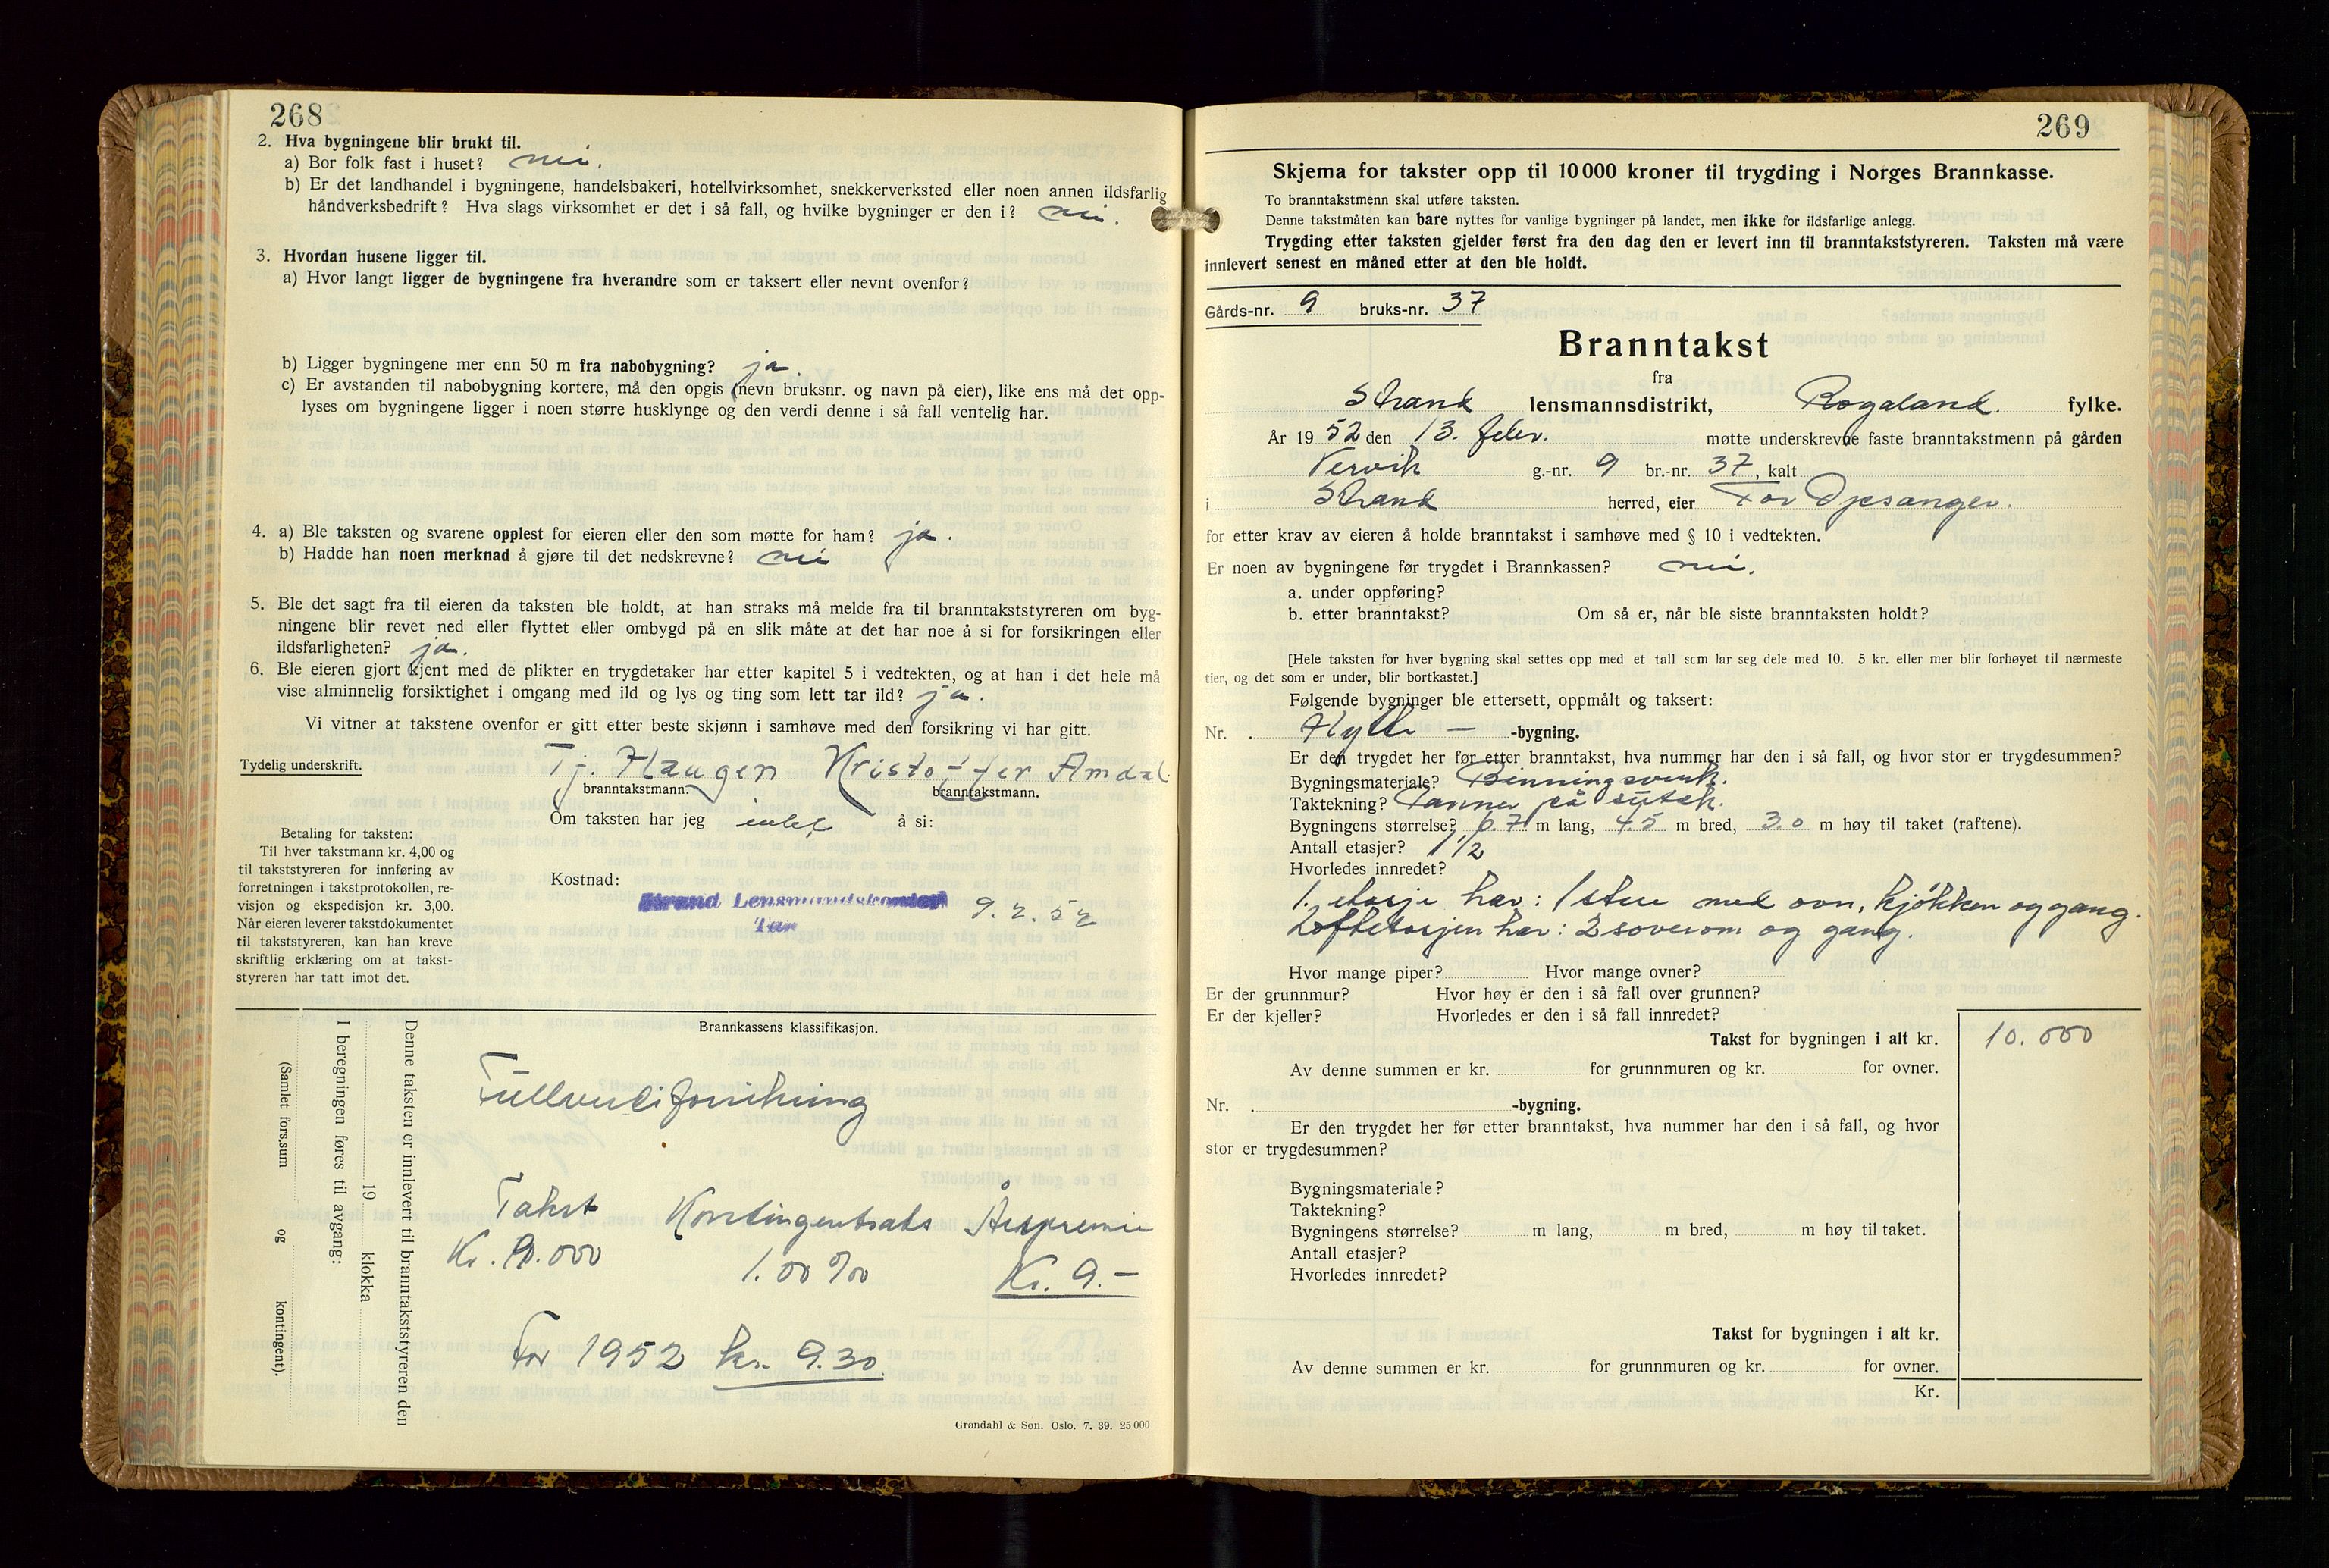 268
2. Hva bygningene blir brukt til.
a) Bor folk fast i huset? nei.
b) Er det landhandel i bygningene, handelsbakeri, hotellvirksomhet, snekkerverksted eller noen annen ildsfarlig
håndverksbedrift? Hva slags virksomhet er det i så fall, og hvilke bygninger er den i? nei.
3. Hvordan husene ligger til.
a) Hvor langt ligger de bygningene fra hverandre som er taksert eller nevnt ovenfor?
b) Ligger bygningene mer enn 50 m fra nabobygning? ja.
c) Er avstanden til nabobygning kortere, må den opgis (nevn bruksnr. og navn på eier), like ens må det opp-
lyses om bygningene ligger i noen større husklynge og den verdi denne i så fall ventelig har.
4. a) Ble taksten og svarene opplest for eieren eller den som møtte for ham? ja.
b) Hadde han noen merknad å gjøre til det nedskrevne? nei
5. Ble det sagt fra til eieren da taksten ble holdt, at han straks må melde fra til branntakststyreren om byg-
ningene blir revet ned eller flyttet eller ombygd på en slik måte at det har noe å si for forsikringen eller
ildsfarligheten? ja.
6. Ble eieren gjort kjent med de plikter en trygdetaker har etter kapitel 5 i vedtekten, og at han i det hele må
vise alminnelig forsiktighet i omgang med ild og lys og ting som lett tar ild? ja.
Vi vitner at takstene ovenfor er gitt etter beste skjønn i samhøve med den forsikring vi har gitt.
Tydelig underskrift. Tj. Haugen Kristoffer Amdal
branntakstmann. branntakstmann.
Om taksten har jeg intet å si:
Betaling for taksten:
Til hver takstmann kr. 4,00 og
til takststyreren for innføring av
forretningen i takstprotokollen, re-
visjon og ekspedisjon kr. 3,00.
Når eieren leverer takstdokumentet
til takststyreren, kan han kreve
skriftlig erklæring om at takst-
styreren har tatt imot det.
Kostnad:
Strand Lensmandskontor 9.2.52
Tau
Denne taksten er innlevert til branntakststyreren den
19 klokka
I beregningen føres til avgang:
(Samlet fors.sum og kontingent).
Brannkassens klassifikasjon.
Fullverdiforsikring
Takst Kontingentsats Årspremie
Kr. 9.000 1.00 ‰ Kr. 9.-
For 1952 kr. 9.30
Grøndahl & Søn. Oslo. 7. 39. 25 000
269
Skjema for takster opp til 10 000 kroner til trygding i Norges Brannkasse.
To branntakstmenn skal utføre taksten.
Denne takstmåten kan bare nyttes for vanlige bygninger på landet, men ikke for ildsfarlige anlegg.
Trygding etter taksten gjelder først fra den dag den er levert inn til branntakststyreren. Taksten må være
innlevert senest en måned etter at den ble holdt.
Gårds-nr. 9 bruks-nr. 37
Branntakst
fra
Strand lensmannsdistrikt, Rogaland. fylke.
År 1952 den 13. febr. møtte underskrevne faste branntakstmenn på gården
Vervik g.-nr. 9 br.-nr. 37, kalt
i Strand herred, eier Tor Opesanger.
for etter krav av eieren å holde branntakst i samhøve med § 10 i vedtekten.
Er noen av bygningene før trygdet i Brannkassen? nei.
a. under oppføring?
b. etter branntakst? Om så er, når ble siste branntaksten holdt?
[Hele taksten for hver bygning skal settes opp med et tall som lar seg dele med 10. 5 kr. eller mer blir forhøyet til nærmeste
tier, og det som er under, blir bortkastet.]
Følgende bygninger ble ettersett, oppmålt og taksert:
Nr. . Hytte - -bygning.
Er den trygdet her før etter branntakst, hva nummer har den i så fall, og hvor stor er trygdesummen?
Bygningsmateriale? Binningsverk.
Taktekning? Panner på sutak.
Bygningens størrelse? 6.7 m lang, 4.5 m bred, 3.0 m høy til taket (raftene).
Antall etasjer? 1 1/2
Hvorledes innredet?
1. etasje har: 1 stue med ovn, kjøkken og gang.
Loftetasjen har: 2 soverom og gang.
Hvor mange piper? Hvor mange ovner?
Er der grunnmur? Hvor høy er den i så fall over grunnen?
Er der kjeller? Hvorledes er den i så fall innredet?
Takst for bygningen i alt kr. 10.000
Av denne summen er kr. for grunnmuren og kr. for ovner.
Nr. . -bygning.
Er den trygdet her før etter branntakst, hva nummer har den i så fall, og hvor
stor er trygdesummen?
Bygningsmateriale?
Taktekning?
Bygningens størrelse? m lang, m bred, m høy til taket.
Antall etasjer?
Hvorledes innredet?
Takst for bygningen i alt kr.
Av denne summen er kr. for grunnmuren og kr. for ovner.
Kr.